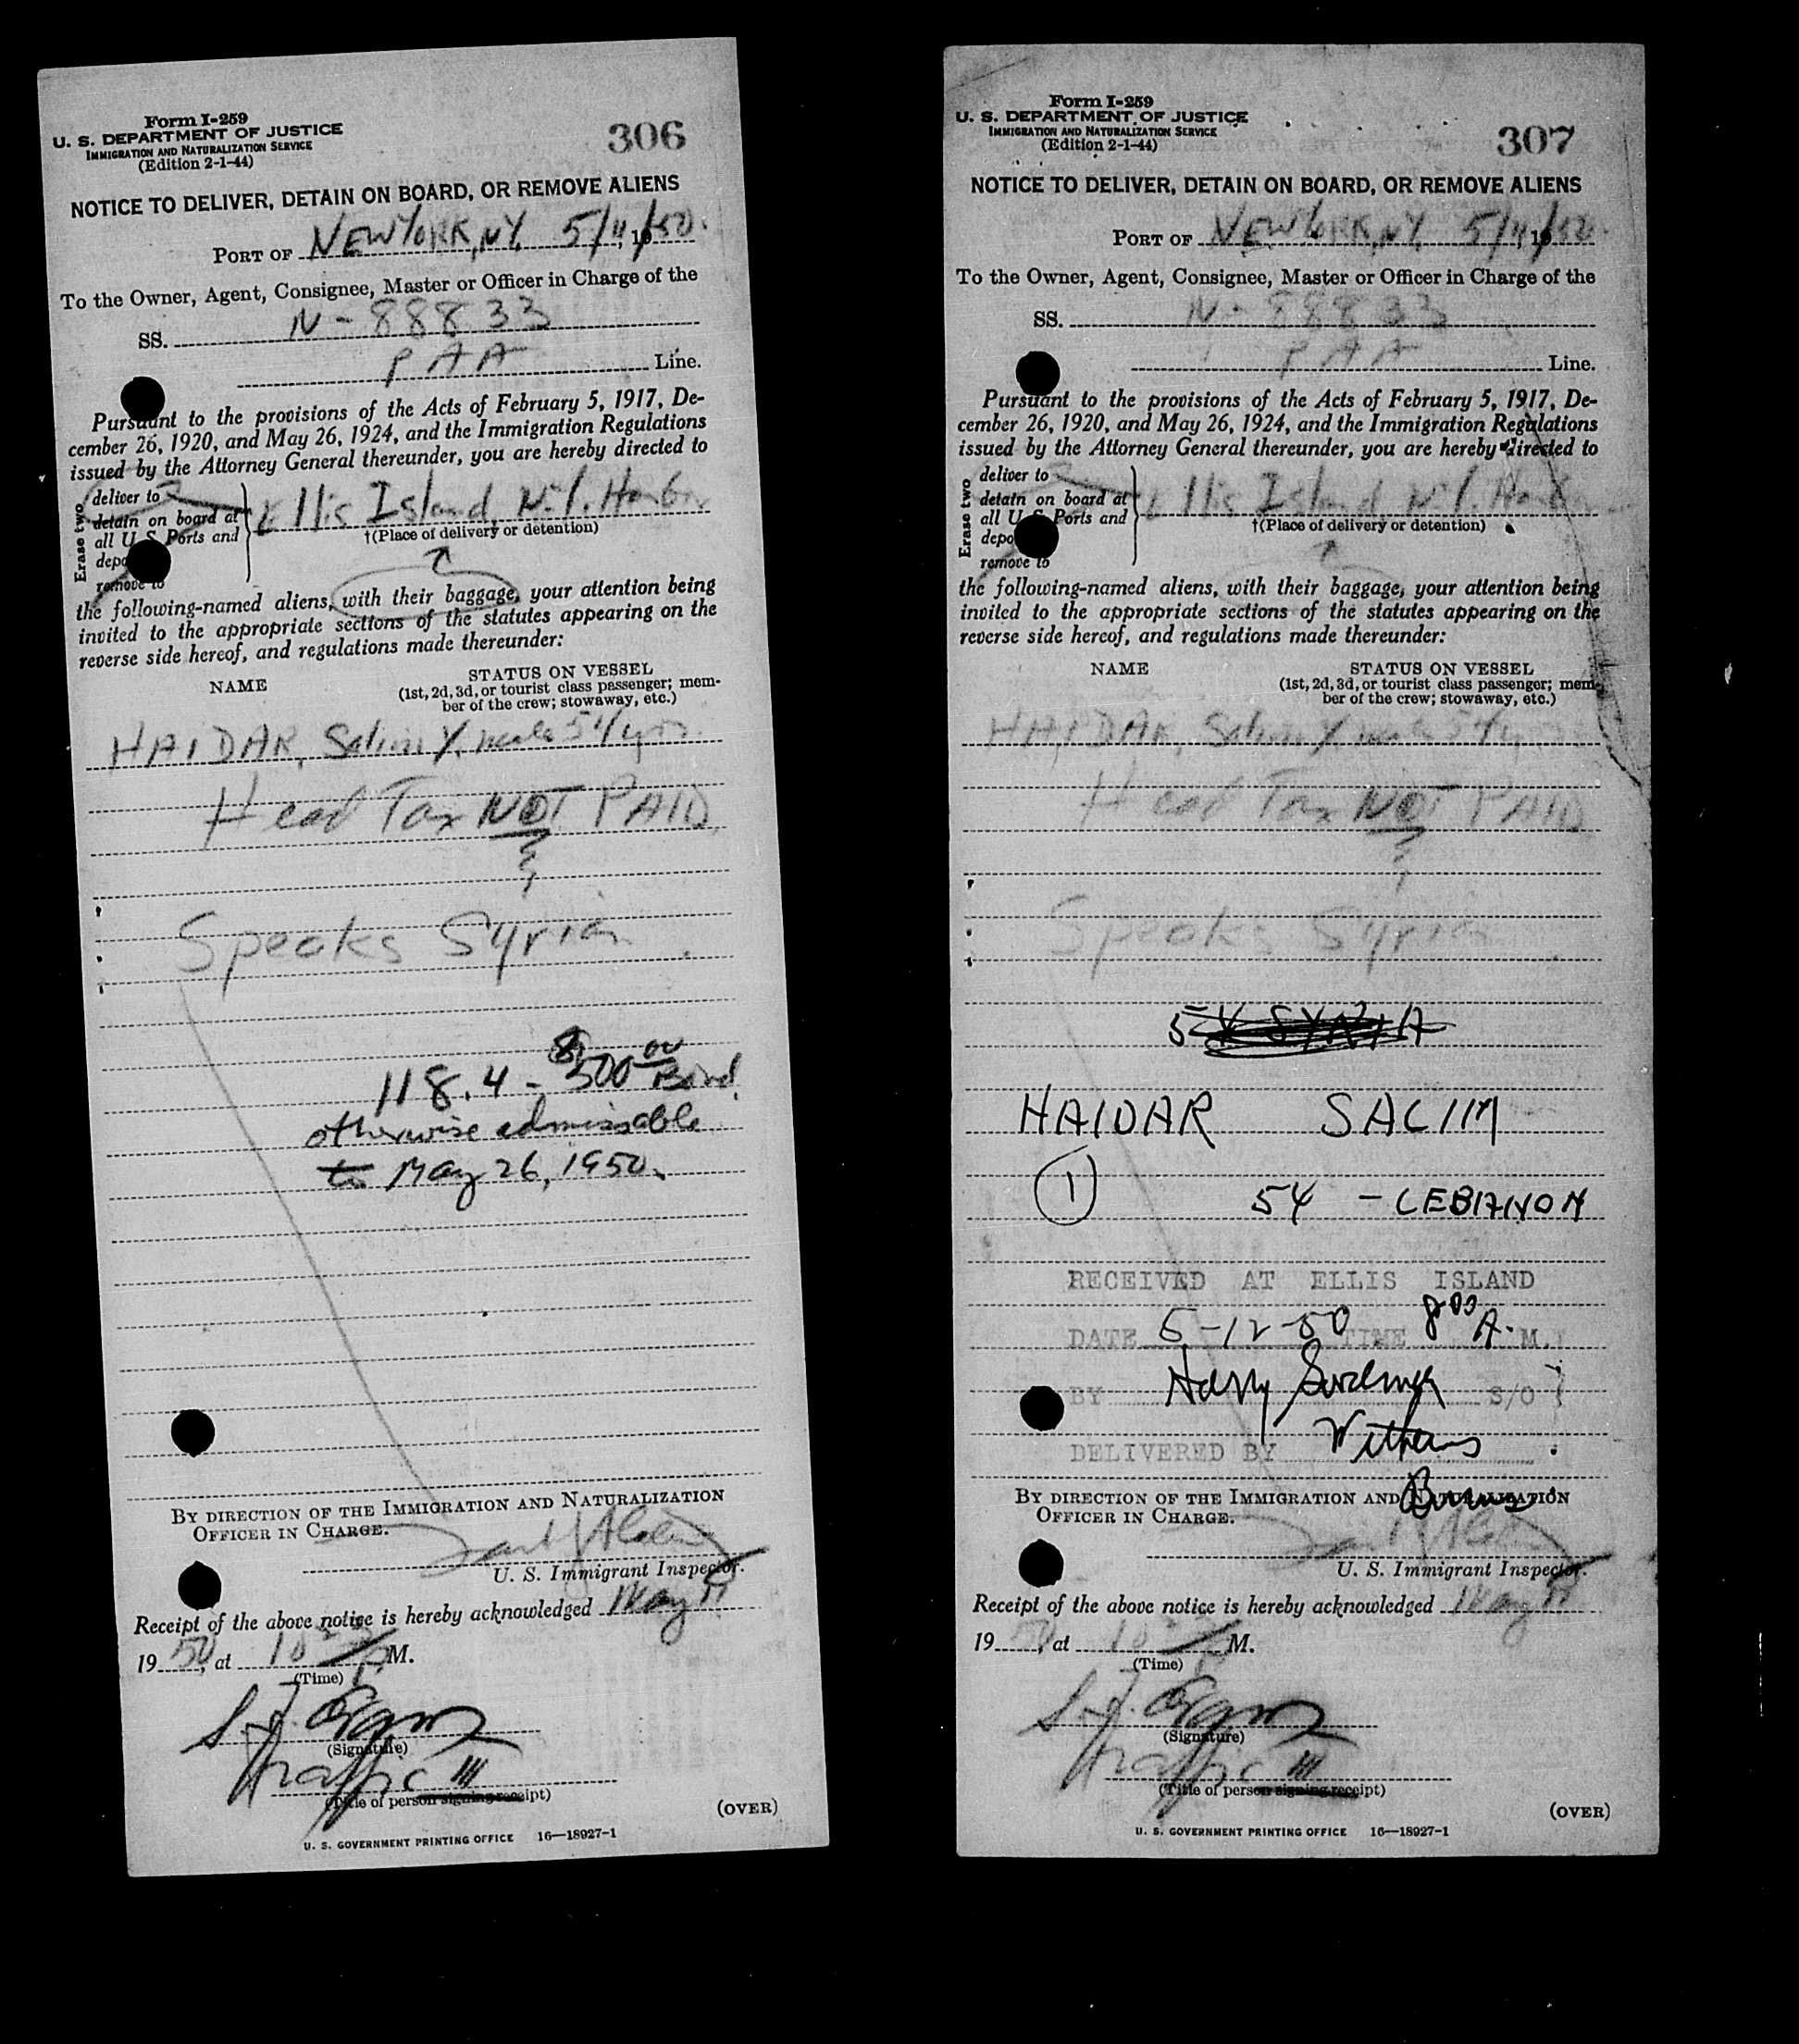 Form I-259
U. S. DEPARTMENT OF JUSTICE
IMMIGRATION AND NATURALIZATION SERVICE
(Edition 2-1-44)
306
NOTICE TO DELIVER, DETAIN ON BOARD, OR REMOVE ALIENS
PORT OF NEW YORK, NY, 5/11, 19/50.
To the Owner, Agent, Consignee, Master or Officer in Charge of the
SS. N-88833
PAA Line.
Pursuant to the provisions of the Acts of February 5, 1917, De-
cember 26, 1920, and May 26, 1924, and the Immigration Regulations
issued by the Attorney General thereunder, you are hereby directed to
Erase two
deliver to
detain on board at
all U. S. Ports and
remove to
Ellis Island, N.Y. Harbor
†(Place of delivery or detention)
the following-named aliens, with their baggage, your attention being
invited to the appropriate sections of the statutes appearing on the
reverse side hereof, and regulations made thereunder:
NAME
STATUS ON VESSEL
(1st, 2d, 3d, or tourist class passenger; mem-
ber of the crew; stowaway, etc.)
HAIDAR, Salim Y. male 54 yrs.
Head Tax NOT PAID
Speaks Syrian
118.4 - $500 00 Bond
otherwise admissable
to May 26, 1950.
BY DIRECTION OF THE IMMIGRATION AND NATURALIZATION
OFFICER IN CHARGE.
U. S. Immigrant Inspector.
Receipt of the above notice is hereby acknowledged May 11
1950, at 10 M.
(Time)
(Signature)
Traffic
(Title of person signing receipt)
(OVER)
U. S. GOVERNMENT PRINTING OFFICE 16—18927-1
Form I-259
U. S. DEPARTMENT OF JUSTICE
IMMIGRATION AND NATURALIZATION SERVICE
(Edition 2-1-44)
307
NOTICE TO DELIVER, DETAIN ON BOARD, OR REMOVE ALIENS
PORT OF NEW YORK, NY, 5/11, 19/50.
To the Owner, Agent, Consignee, Master or Officer in Charge of the
SS. N-88833
PAA Line.
Pursuant to the provisions of the Acts of February 5, 1917, De-
cember 26, 1920, and May 26, 1924, and the Immigration Regulations
issued by the Attorney General thereunder, you are hereby directed to
Erase two
deliver to
detain on board at
all U. S. Ports and
remove to
Ellis Island, N.Y. Harbor
†(Place of delivery or detention)
the following-named aliens, with their baggage, your attention being
invited to the appropriate sections of the statutes appearing on the
reverse side hereof, and regulations made thereunder:
NAME
STATUS ON VESSEL
(1st, 2d, 3d, or tourist class passenger; mem-
ber of the crew; stowaway, etc.)
HAIDAR, Salim Y. male 54 yrs.
Head Tax NOT PAID
Speaks Syrian
HAIDAR SALIM
1 54 - LEBANON
RECEIVED AT ELLIS ISLAND
DATE 5-12-50 TIME 8 00 A. M.
BY Harry S/O
DELIVERED BY
BY DIRECTION OF THE IMMIGRATION AND NATURALIZATION
OFFICER IN CHARGE.
U. S. Immigrant Inspector.
Receipt of the above notice is hereby acknowledged May 11
1950, at 10 M.
(Time)
(Signature)
Traffic
(Title of person signing receipt)
(OVER)
U. S. GOVERNMENT PRINTING OFFICE 16—18927-1